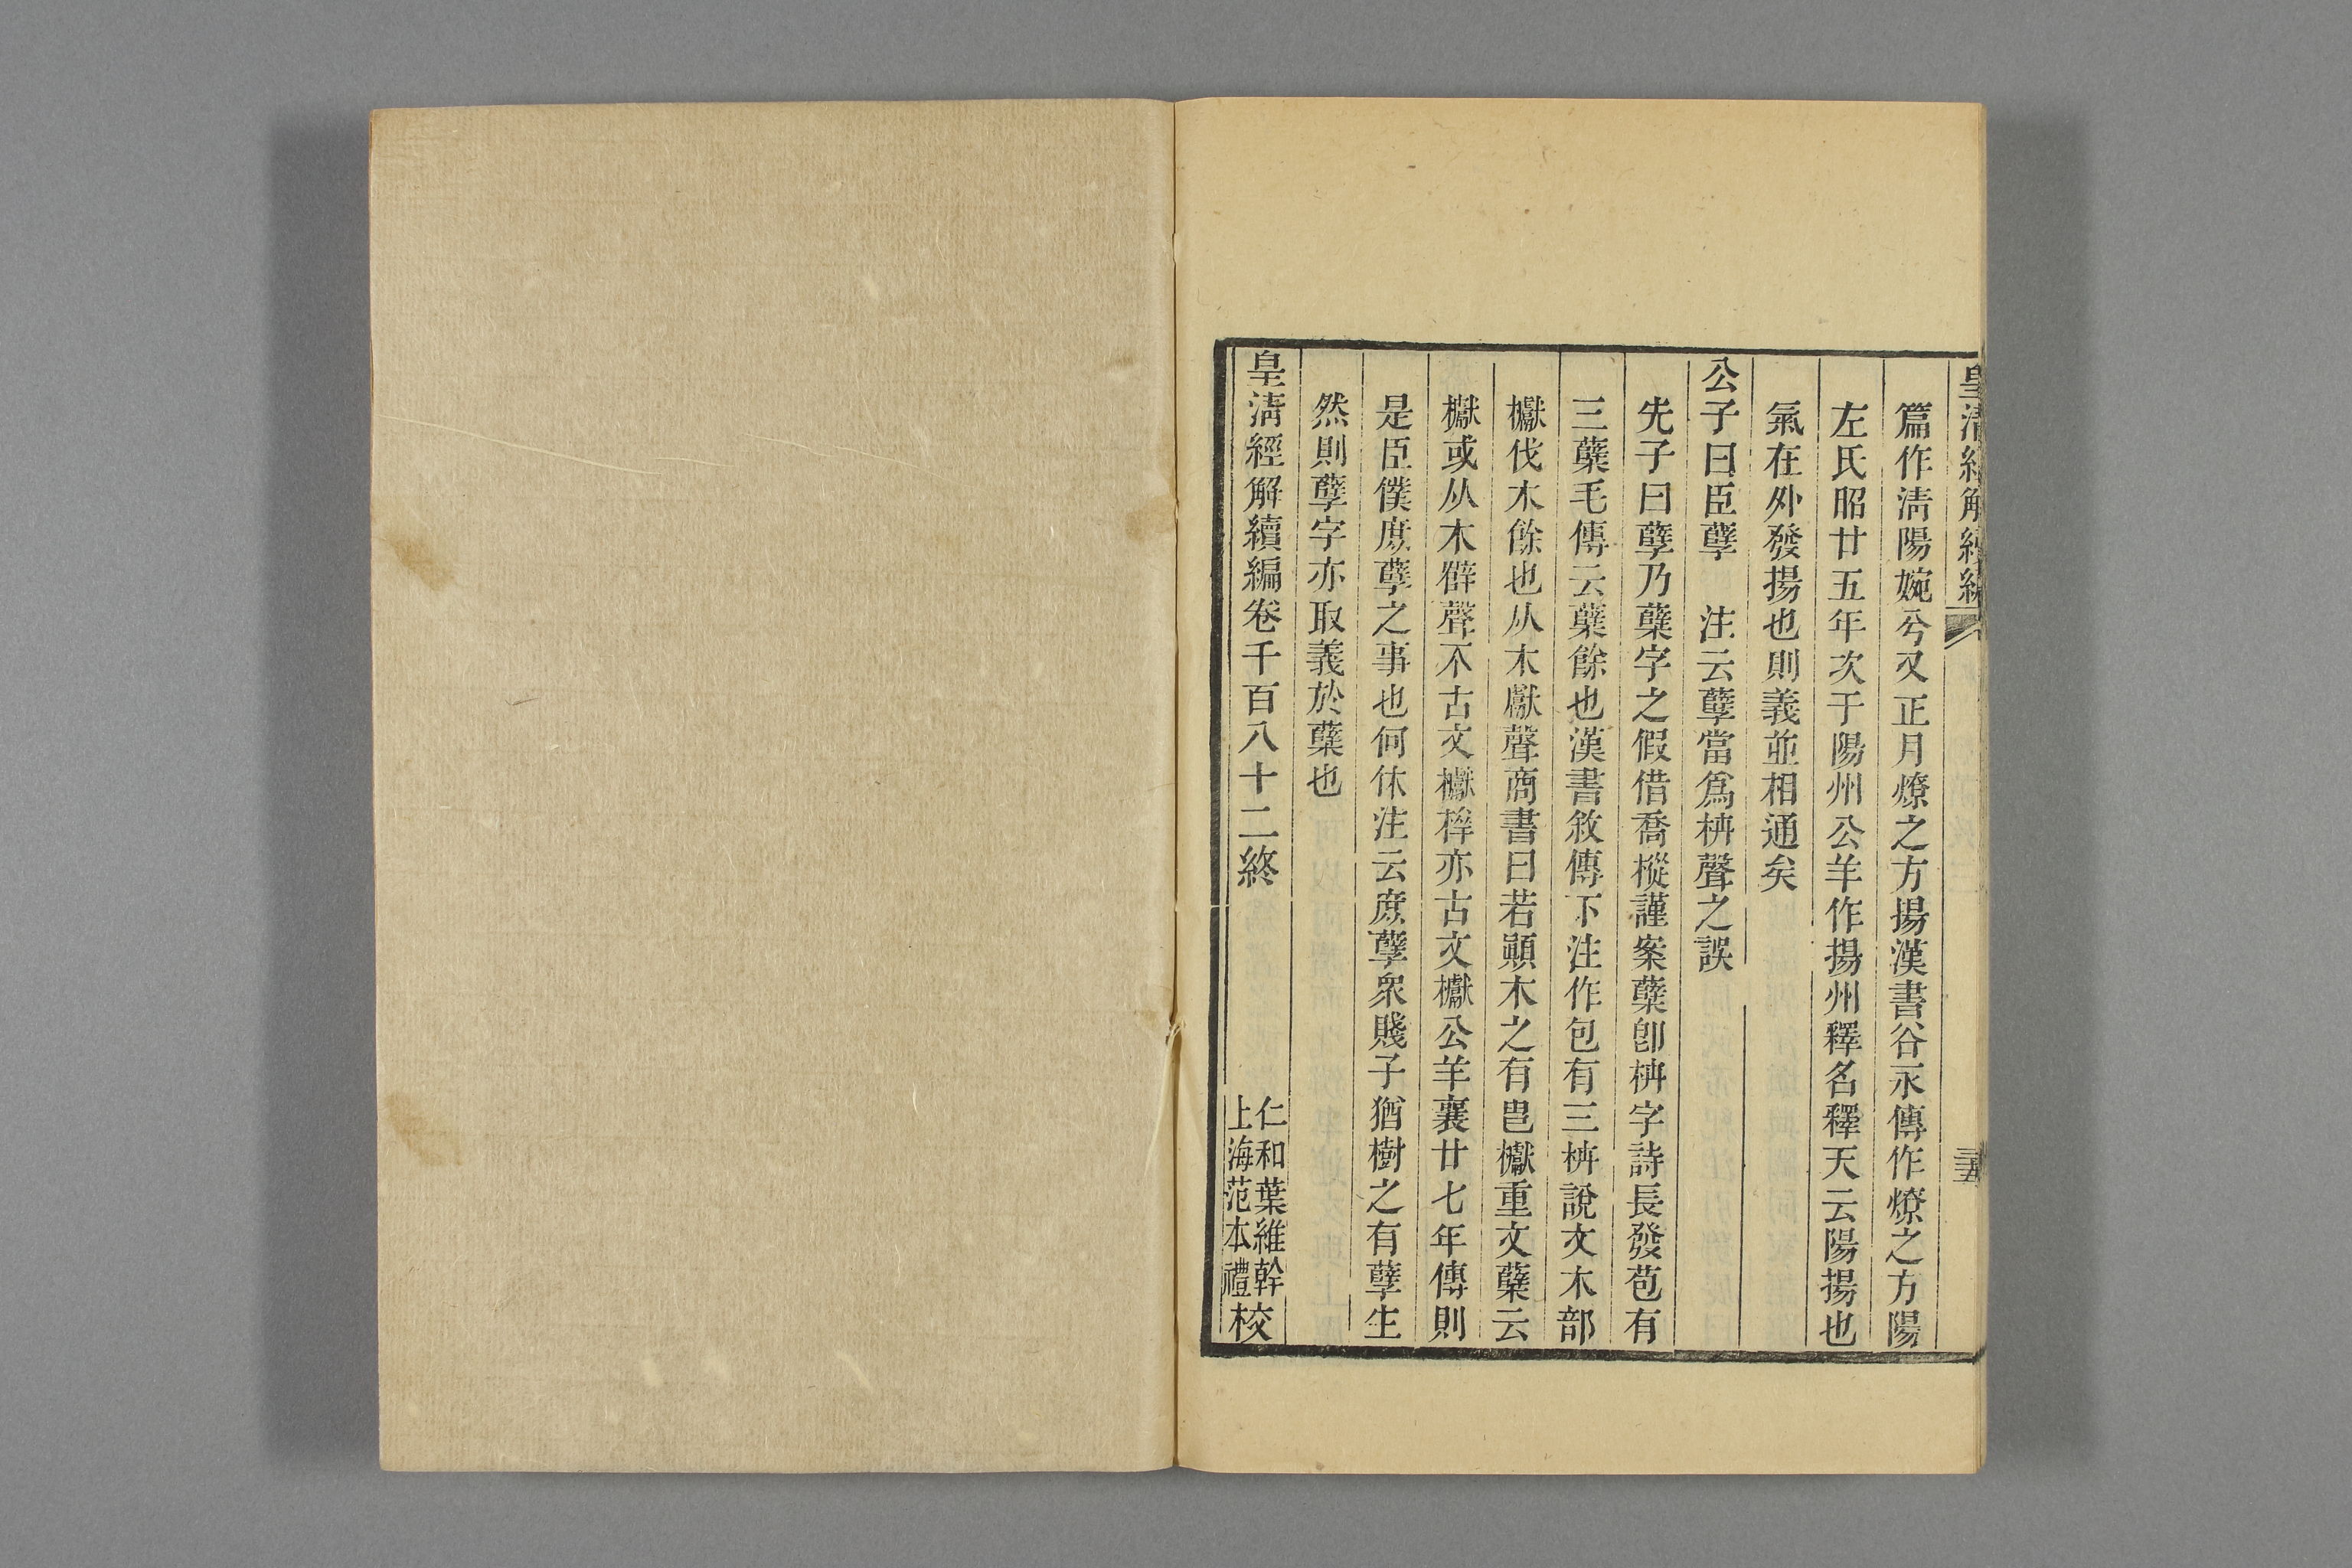 皇清經解續編
三五
篇作清陽婉兮又正月燎之方揚漢書谷永傳作燎之方陽
左氏昭廿五年次于陽州公羊作揚州釋名釋天云陽揚也
氣在外發揚也則義並相通矣
公子曰臣孽　注云孽當爲枿聲之誤
先子曰孽乃蘖字之假借喬樅謹案蘖卽枿字詩長發苞有
三蘖毛傳云蘖餘也漢書敘傳下注作包有三枿說文木部
櫱伐木餘也从木獻聲商書曰若顚木之有㽕櫱重文蘖云
櫱或从木辥聲不古文櫱㭮亦古文櫱公羊襄廿七年傳則
是臣僕庶孽之事也何休注云庶孽衆賤子猶樹之有孽生
然則孽字亦取義於蘖也
皇清經解續編卷千百八十二終
仁和葉維幹
上海范本禮
校